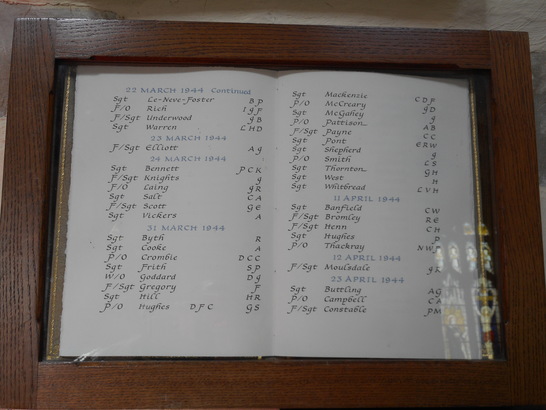 22 MARCH 1944 Continued
Sgt Le-Neve-Foster B P
P/O Rich I G F
F/Sgt Underwood G B
Sgt Warren L H D
23 MARCH 1944
F/Sgt Elliott A G
24 MARCH 1944
Sgt Bennett P C K
F/Sgt Knights G
F/O Laing G R
Sgt Salt C A
F/Sgt Scott G E
Sgt Vickers A
31 MARCH 1944
Sgt Byth R
Sgt Cooke A
P/O Crombie D C C
Sgt Frith S P
W/O Goddard D G
F/Sgt Gregory F
Sgt Hill H R
P/O Hughes D F C G S
Sgt Mackenzie C D F
P/O McCreary G D
Sgt McGahey G
P/O Pattison A B
F/Sgt Payne C C
Sgt Pont E R W
Sgt Shepherd G
P/O Smith L S
Sgt Thornton G H
Sgt West H
Sgt Whitbread L V H
11 APRIL 1944
Sgt Banfield C W
F/Sgt Bromley R E
F/Sgt Henn C H
Sgt Hughes P
P/O Thackray N W
12 APRIL 1944
F/Sgt Moulsdale G R
23 APRIL 1944
Sgt Buttling A G
P/O Campbell C A
F/Sgt Constable P M